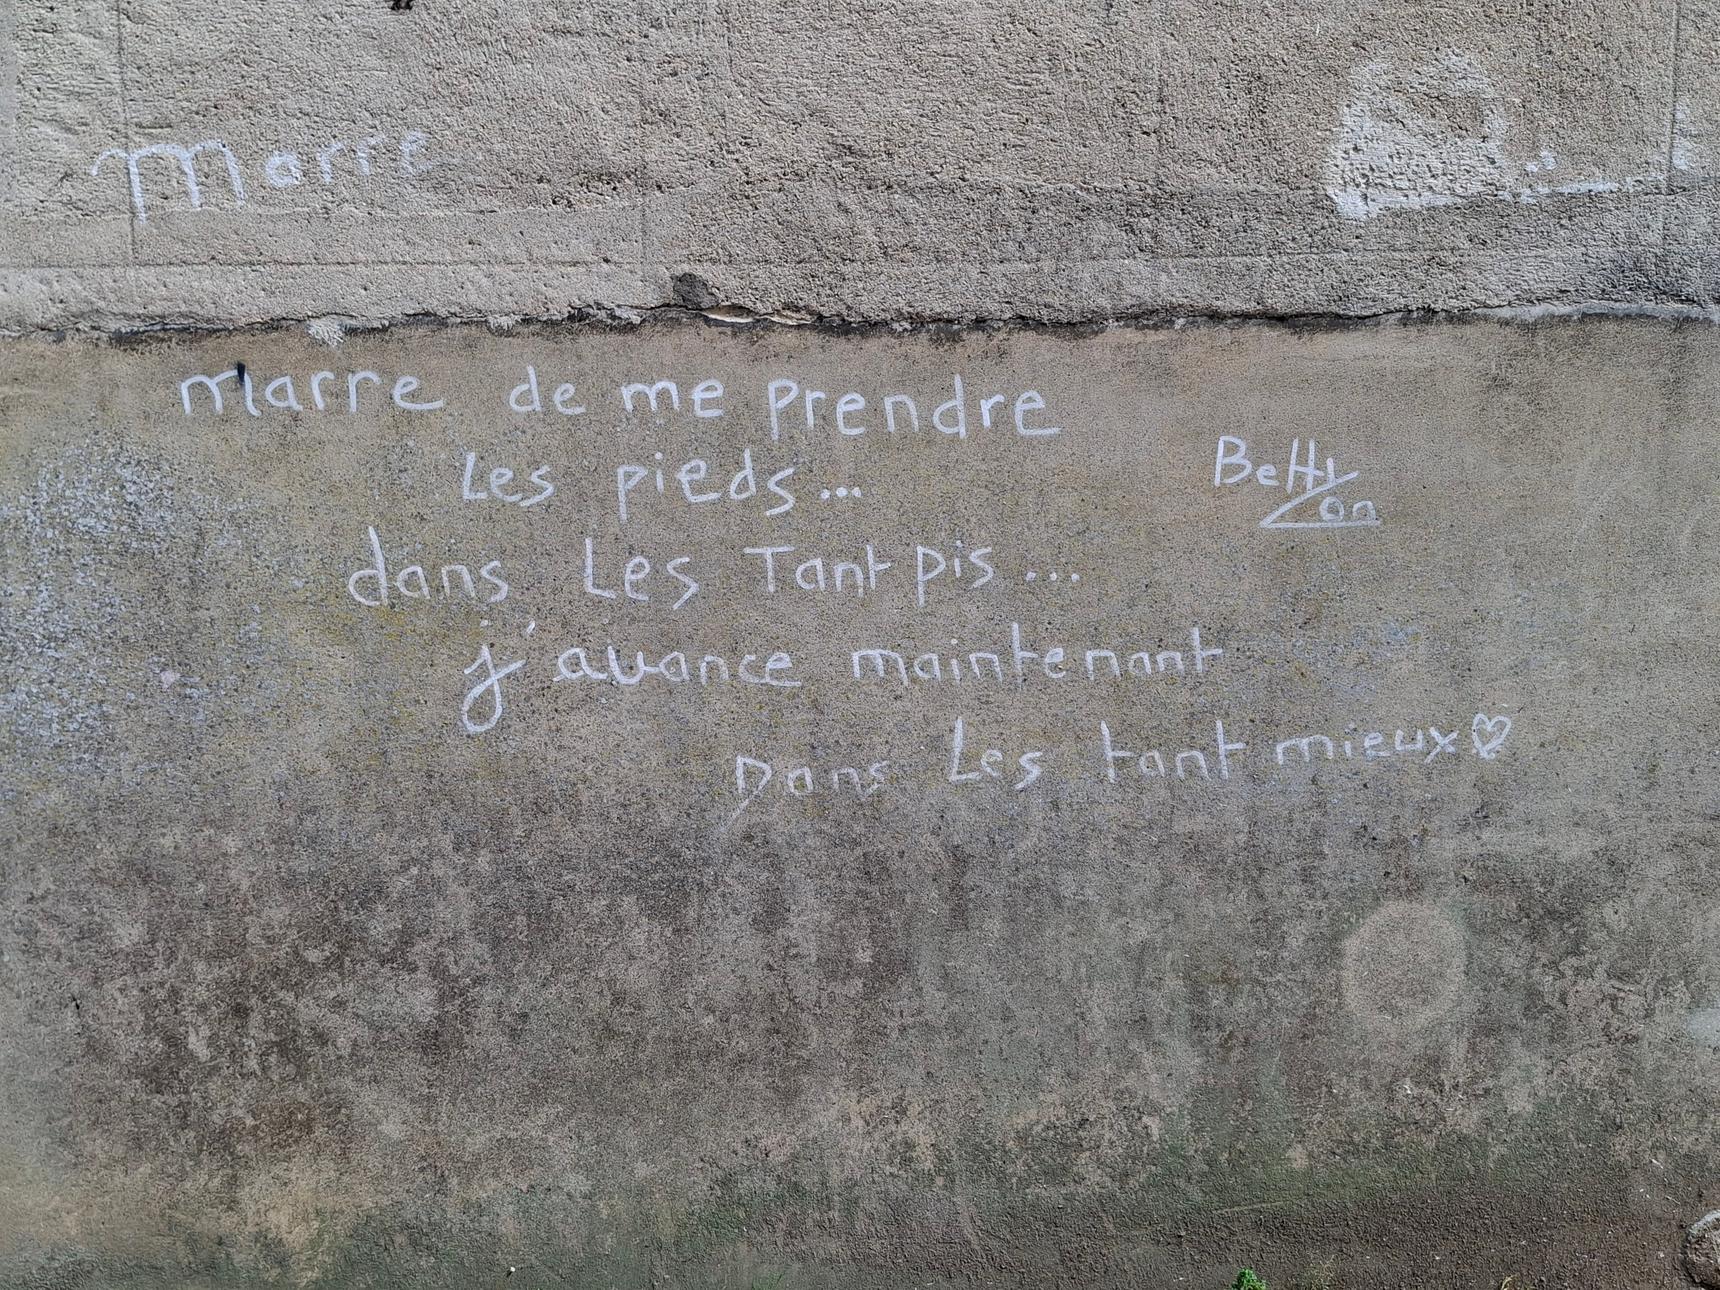 Marre
marre de me prendre
Les pieds...
Betty
on
dans Les Tant pis...
j'avance maintenant
Dans Les tant mieux